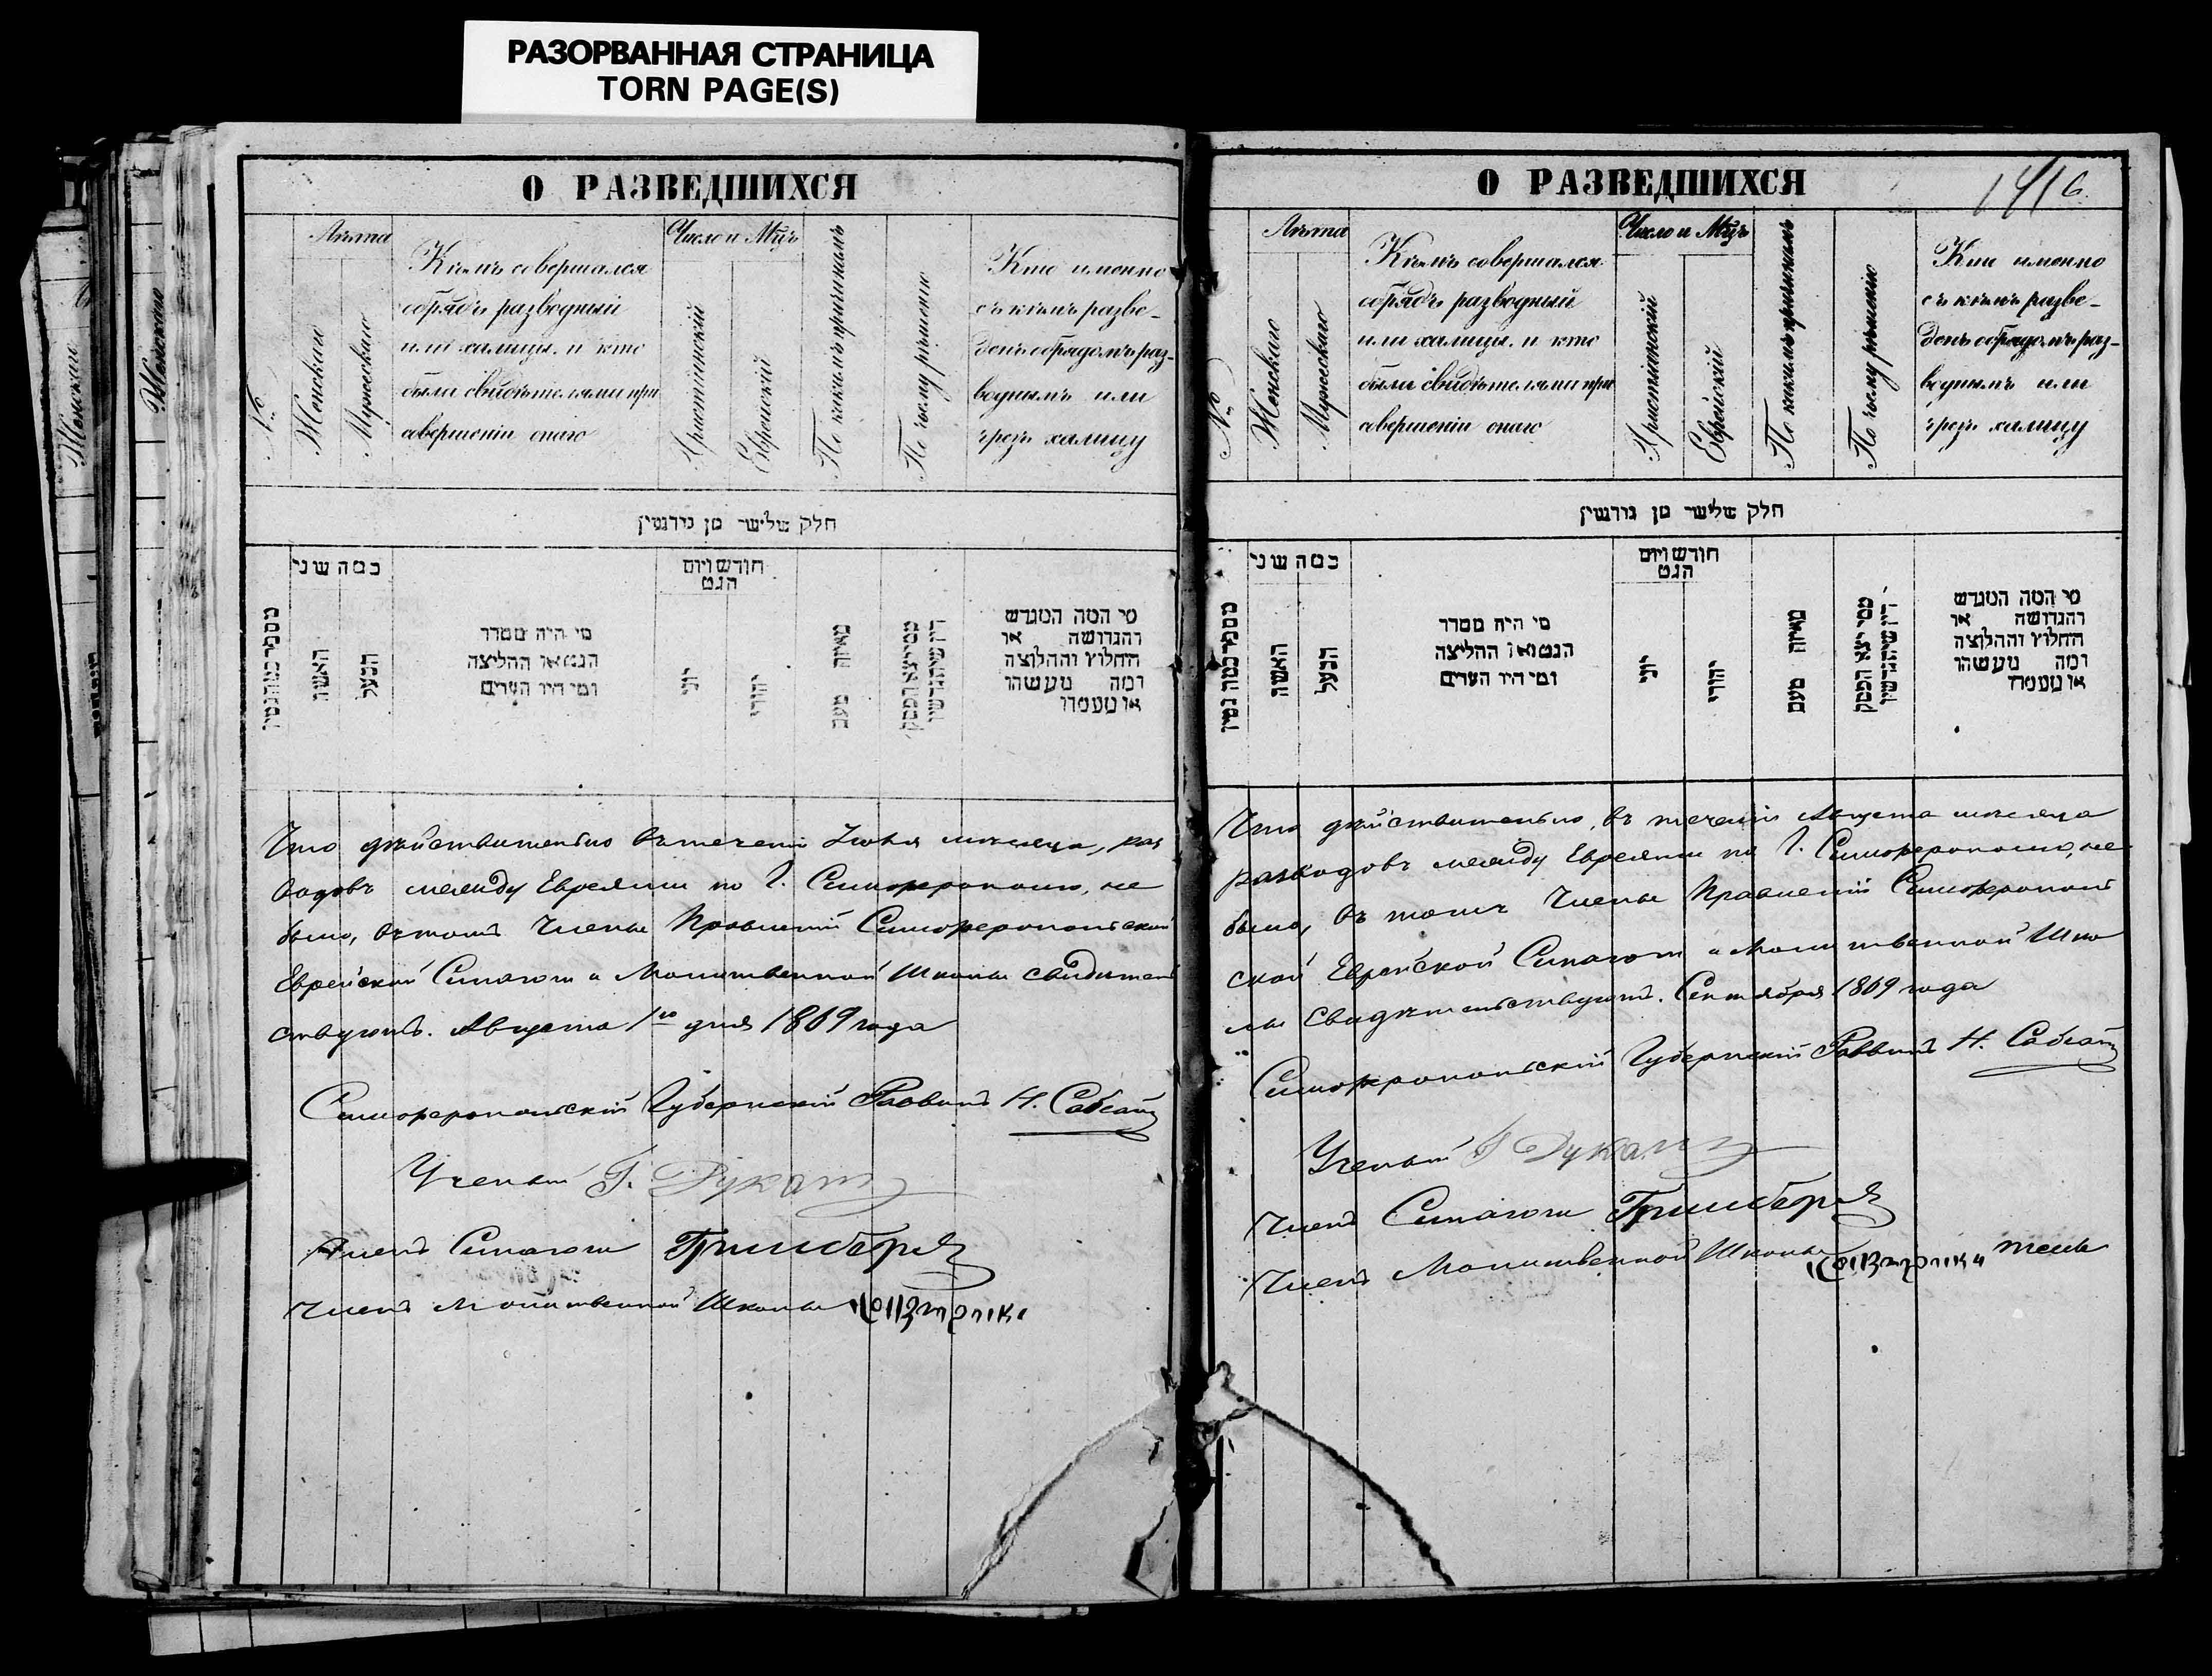 РАЗОРВАННАЯ СТРАНИЦА
TORN PAGE(S)
О РАЗВЕДШИХСЯ
№
Лѣта
Женскаго
Мужескаго
Кѣмъ совершался
обрядъ разводный
или халицы, и кто
были свидѣтелями при
совершеніи онаго
Число и Мцъ
Христіанскій
Еврейскій
По какимъ причинамъ
По чьему рѣшенію
Кто именно
съ кѣмъ разве-
денъ обрядомъ раз-
воднымъ или
чрезъ халицу
חלק שלישי מן גירושין
כמה שני
האשה
הבעל
מי היה מסדר
הגט או החליצה
ומי היו העדים
חודש ויום
הגט
יוני
יהודי
מאיזה טעם
מי המה המגרש
והגרושה או
החלוץ והחלוצה
ומה מעשהו
או מעמדו
Что дѣйствительно въ теченіи Іюля мѣсяца, раз
водовъ между Евреями по Г. Симферополю, не
было, въ томъ Члены Правленій Симферопольской
Еврейской Синагоги и Молитвенной Школы свидѣтель
ствуютъ. Августа 1го дня 1869 года
Симферопольскій Губернскій Раввинъ Н. Сабсай
Ученый Г. Дукатъ
Членъ Синагоги Гринберг
Членъ Молитвенной Школы
О РАЗВЕДШИХСЯ
№
Лѣта
Женскаго
Мужескаго
Кѣмъ совершался
обрядъ разводный
или халицы, и кто
были свидѣтелями при
совершеніи онаго
Число и Мцъ
Христіанскій
Еврейскій
По какимъ причинамъ
По чьему рѣшенію
Кто именно
съ кѣмъ разве-
денъ обрядомъ раз-
воднымъ или
чрезъ халицу
חלק שלישי מן גירושין
כמה שני
האשה
הבעל
מי היה מסדר
הגט או החליצה
ומי היו העדים
חודש ויום
הגט
יוני
יהודי
מאיזה טעם
מי המה המגרש
והגרושה או
החלוץ והחלוצה
ומה מעשהו
או מעמדו
Что дѣйствительно, въ теченіи Августа мѣсяца
разводовъ между Евреями по Г. Симферополю, не
было, въ томъ Члены Правленій Симферополь
ской Еврейской Синагоги и Молитвенной Шко
лы Свидѣтельствуютъ. Сентября 1869 года
Симферопольскій Губернскій Раввинъ Н. Сабсай
Ученый Г Дукатъ
Членъ Синагоги Гринберг
Членъ Молитвенной Школы